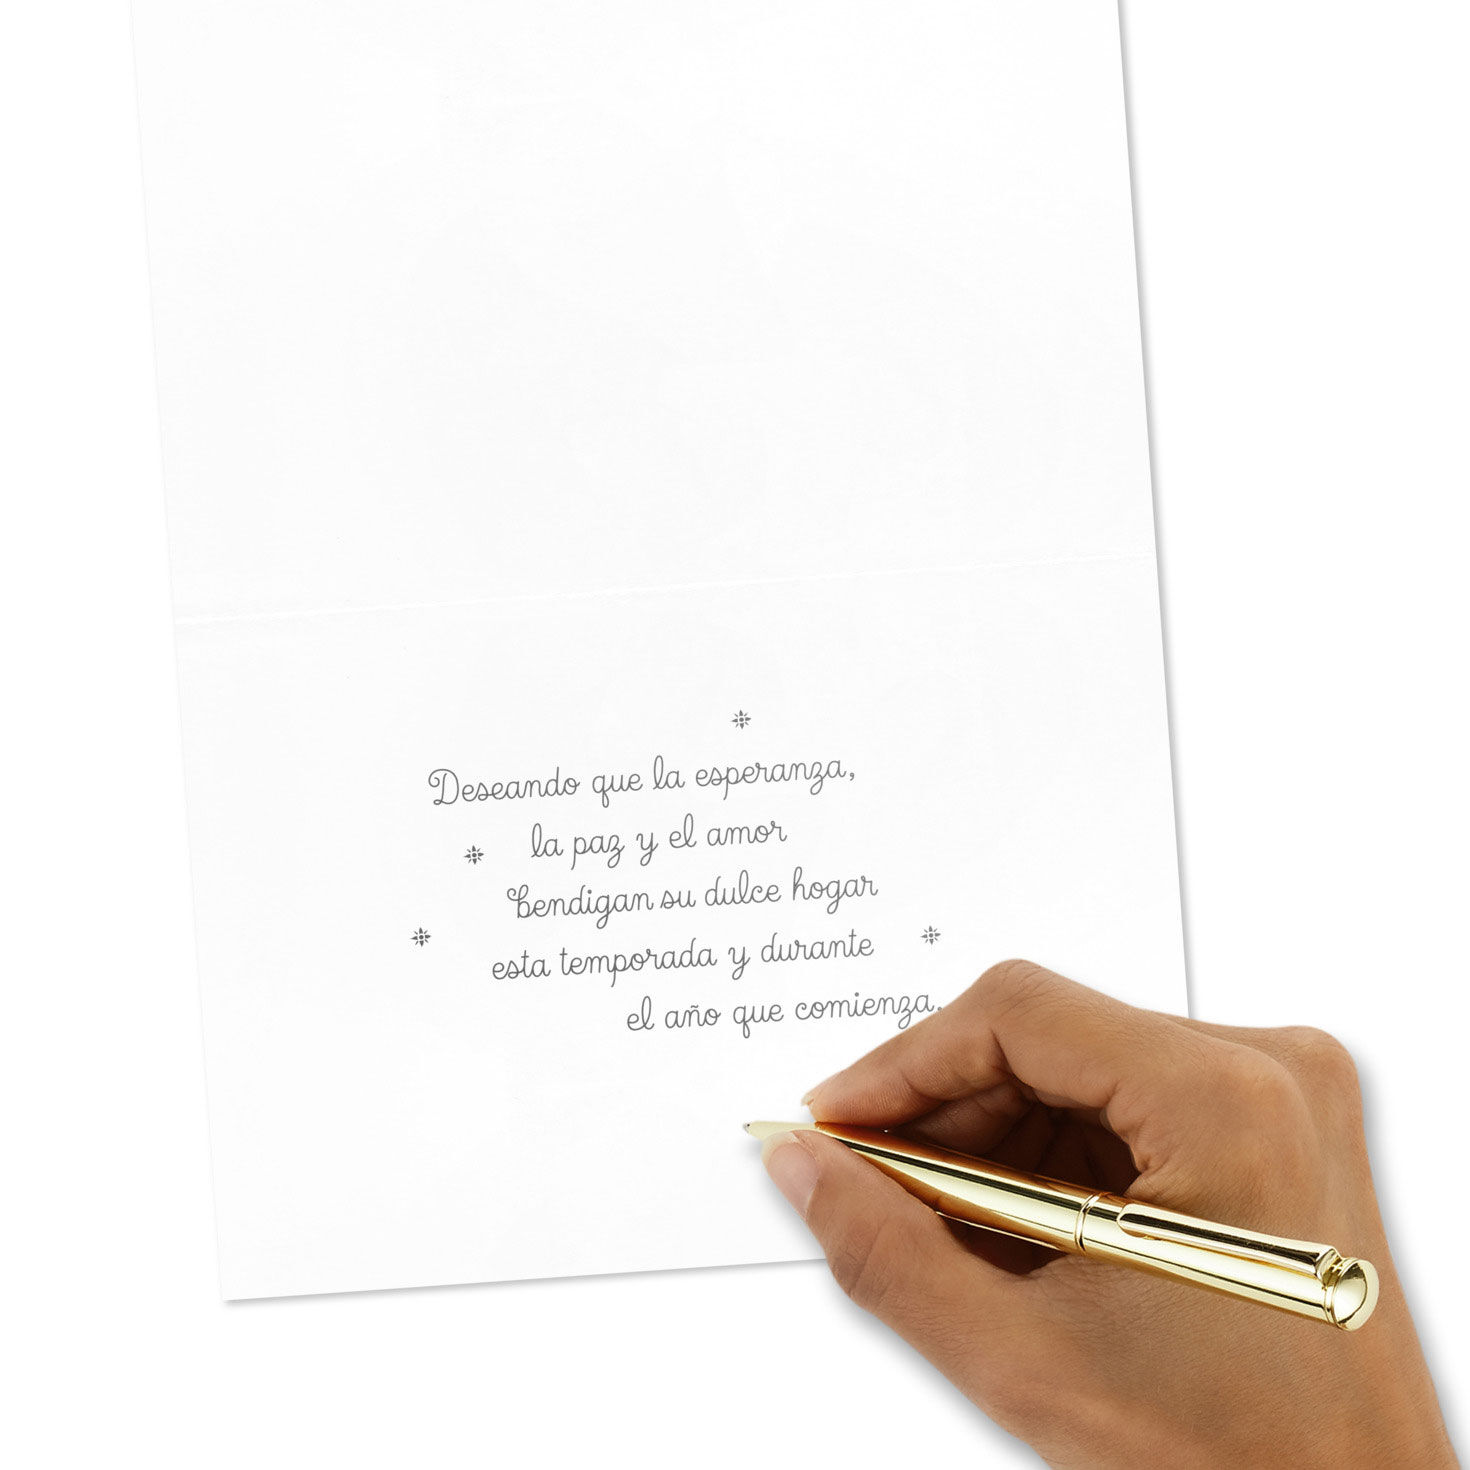 Deseando que la esperanza,
la paz y el amor
bendigan su dulce hogar
esta temporada y durante
el año que comienza.